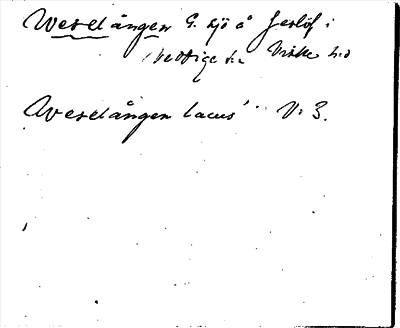 Weselången G. sjö å Jerlöf i
Sverige s.n. Viske h:d
Weselången lacus V: 3.